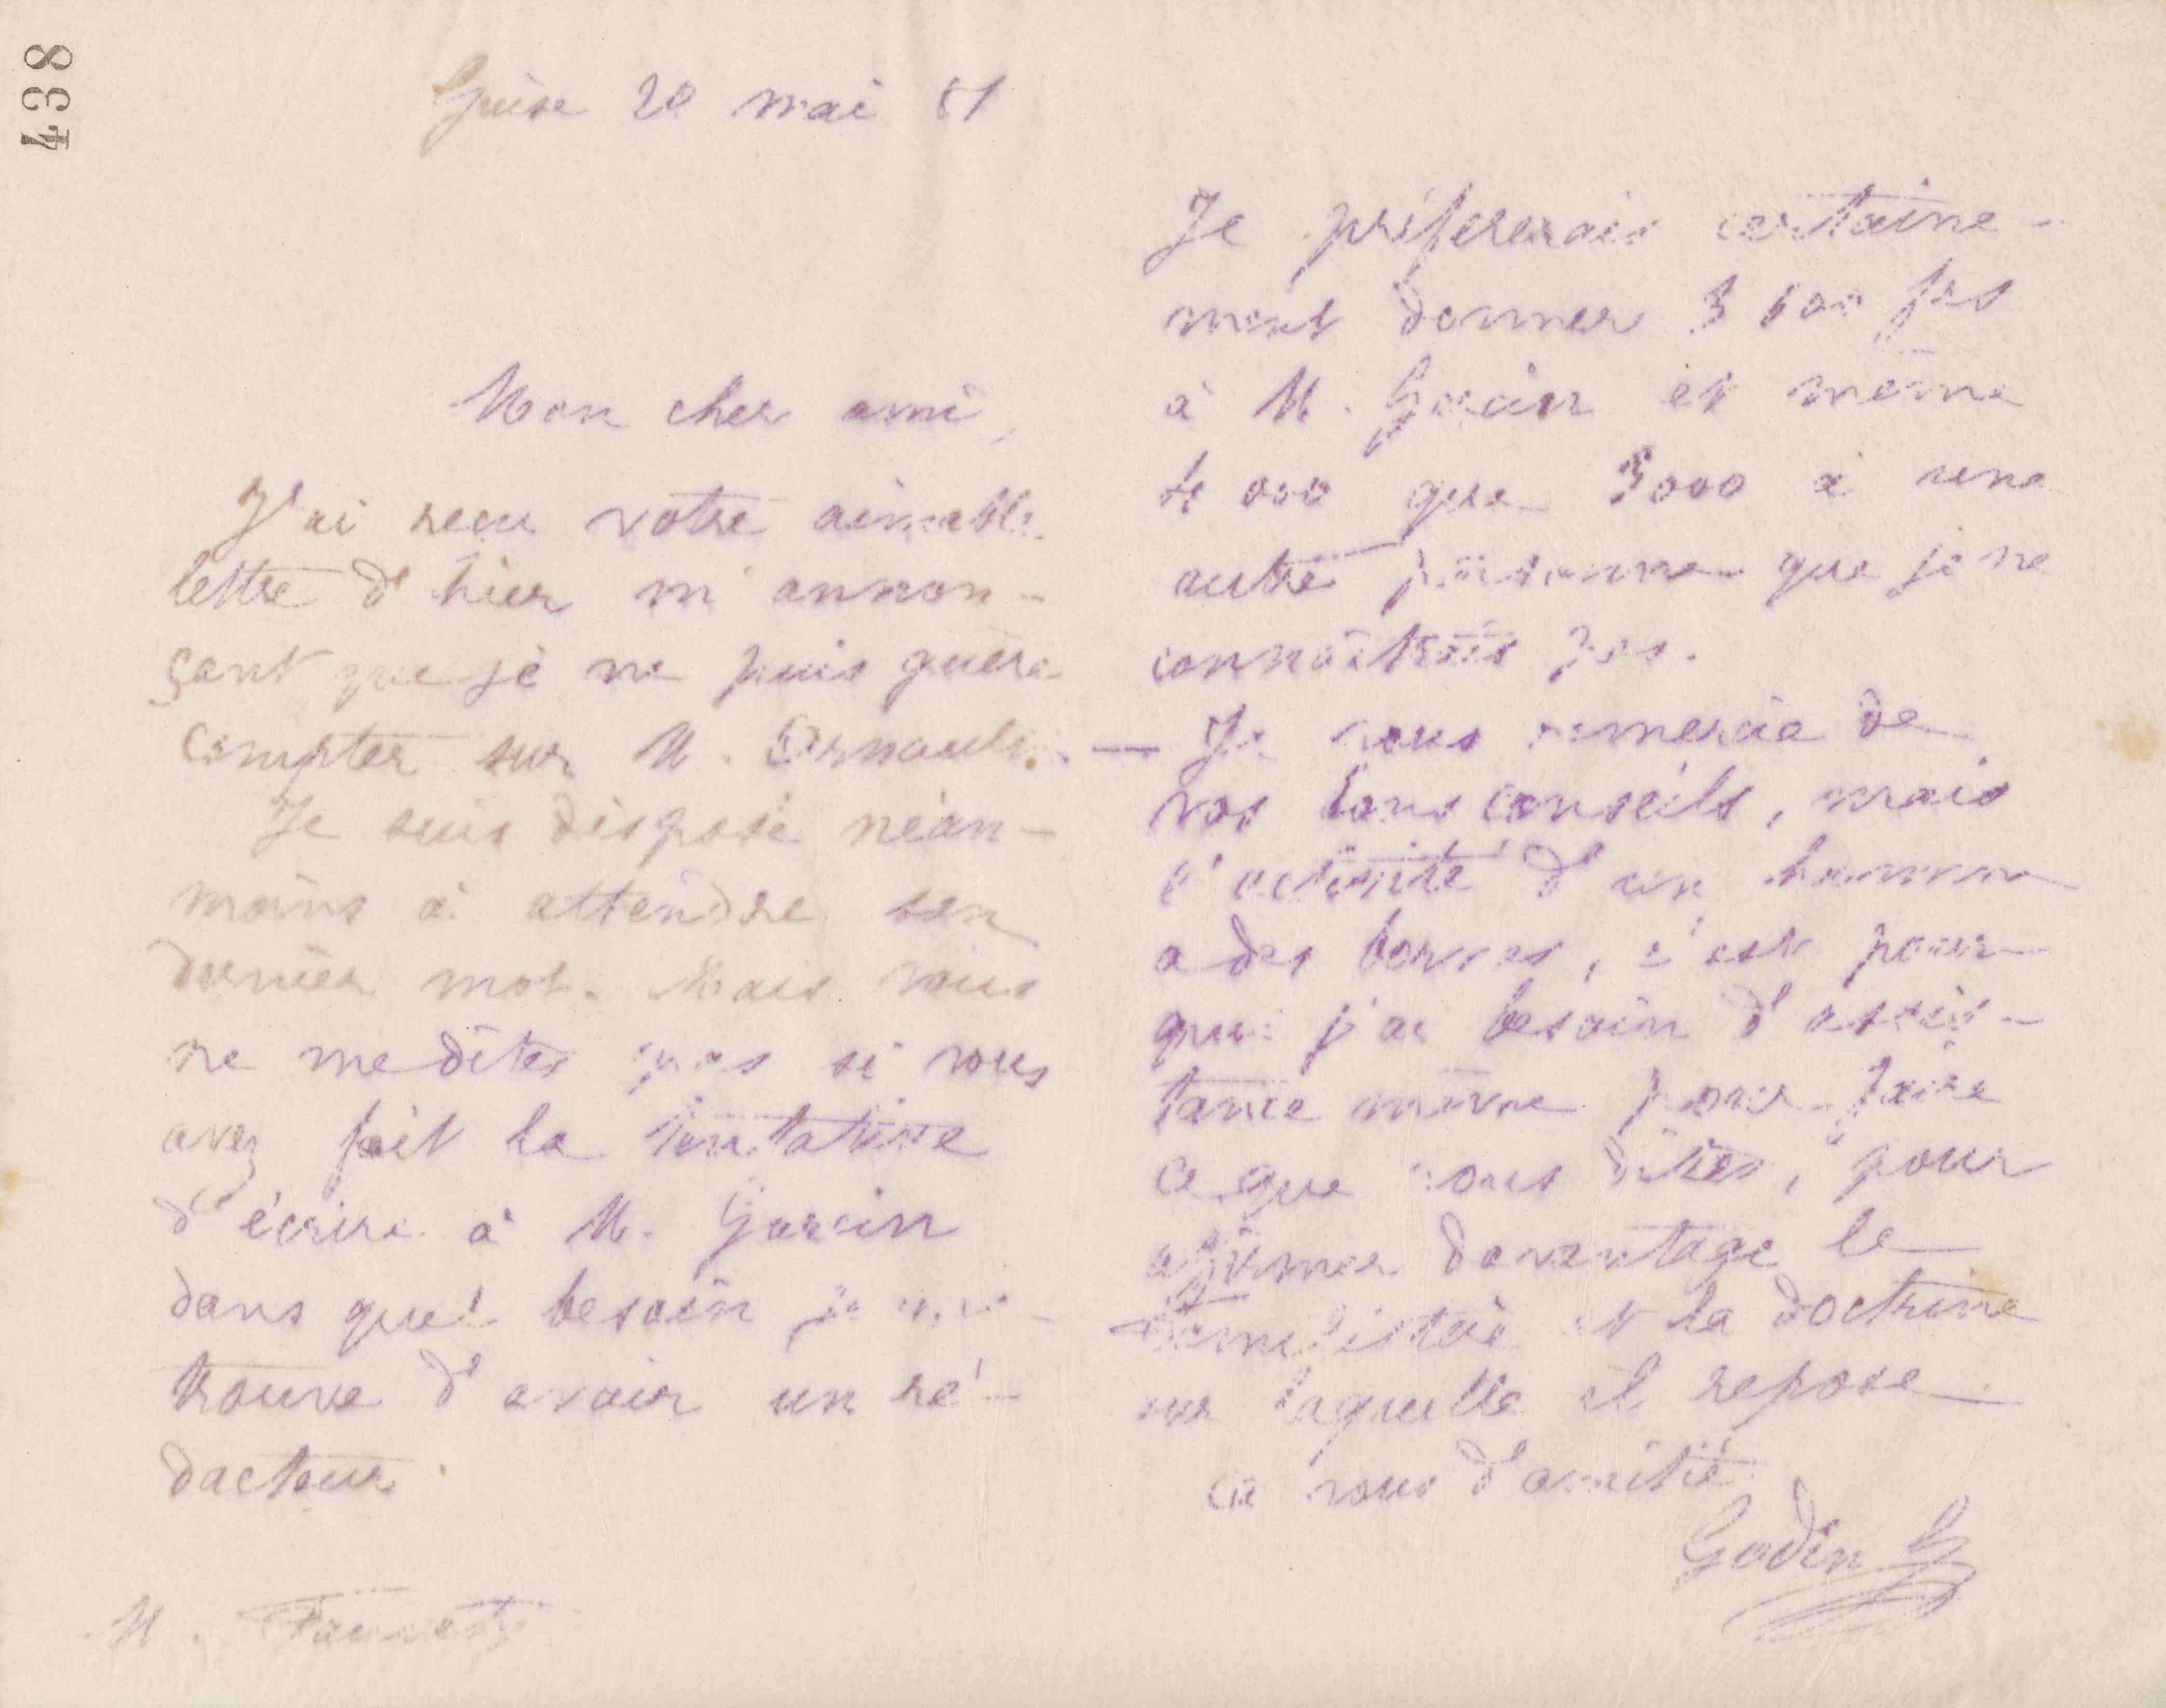 438
Guise 20 mai 81
Mon cher ami,
J'ai recu votre aimable
lettre d'hier m'annon-
çant que je ne puis guère
compter sur M.
Je suis disposé néan-
moins à attendre son
dernier mot. Mais vous
ne me dites pas si vous
avez fait la tentative
d'écrire à M. Garcin
dans quel besoin je me
trouve d'avoir un ré-
dacteur.
M. Fauvety
Je préfererais certaine-
ment donner 3 600 frs
à M. Garcin et même
4 000 que 3000 à une
autre personne que je ne
connaîtrais pas.
— Je vous remercie de
vos bons conseils, mais
l'activité d'un homme
a des bornes, c'est pour-
quoi j'ai besoin d'assis-
tance même pour faire
ce que vous dites, pour
affirmer davantage le
Familistère et la doctrine
sur laquelle il repose
à vous d'amitié
Godin